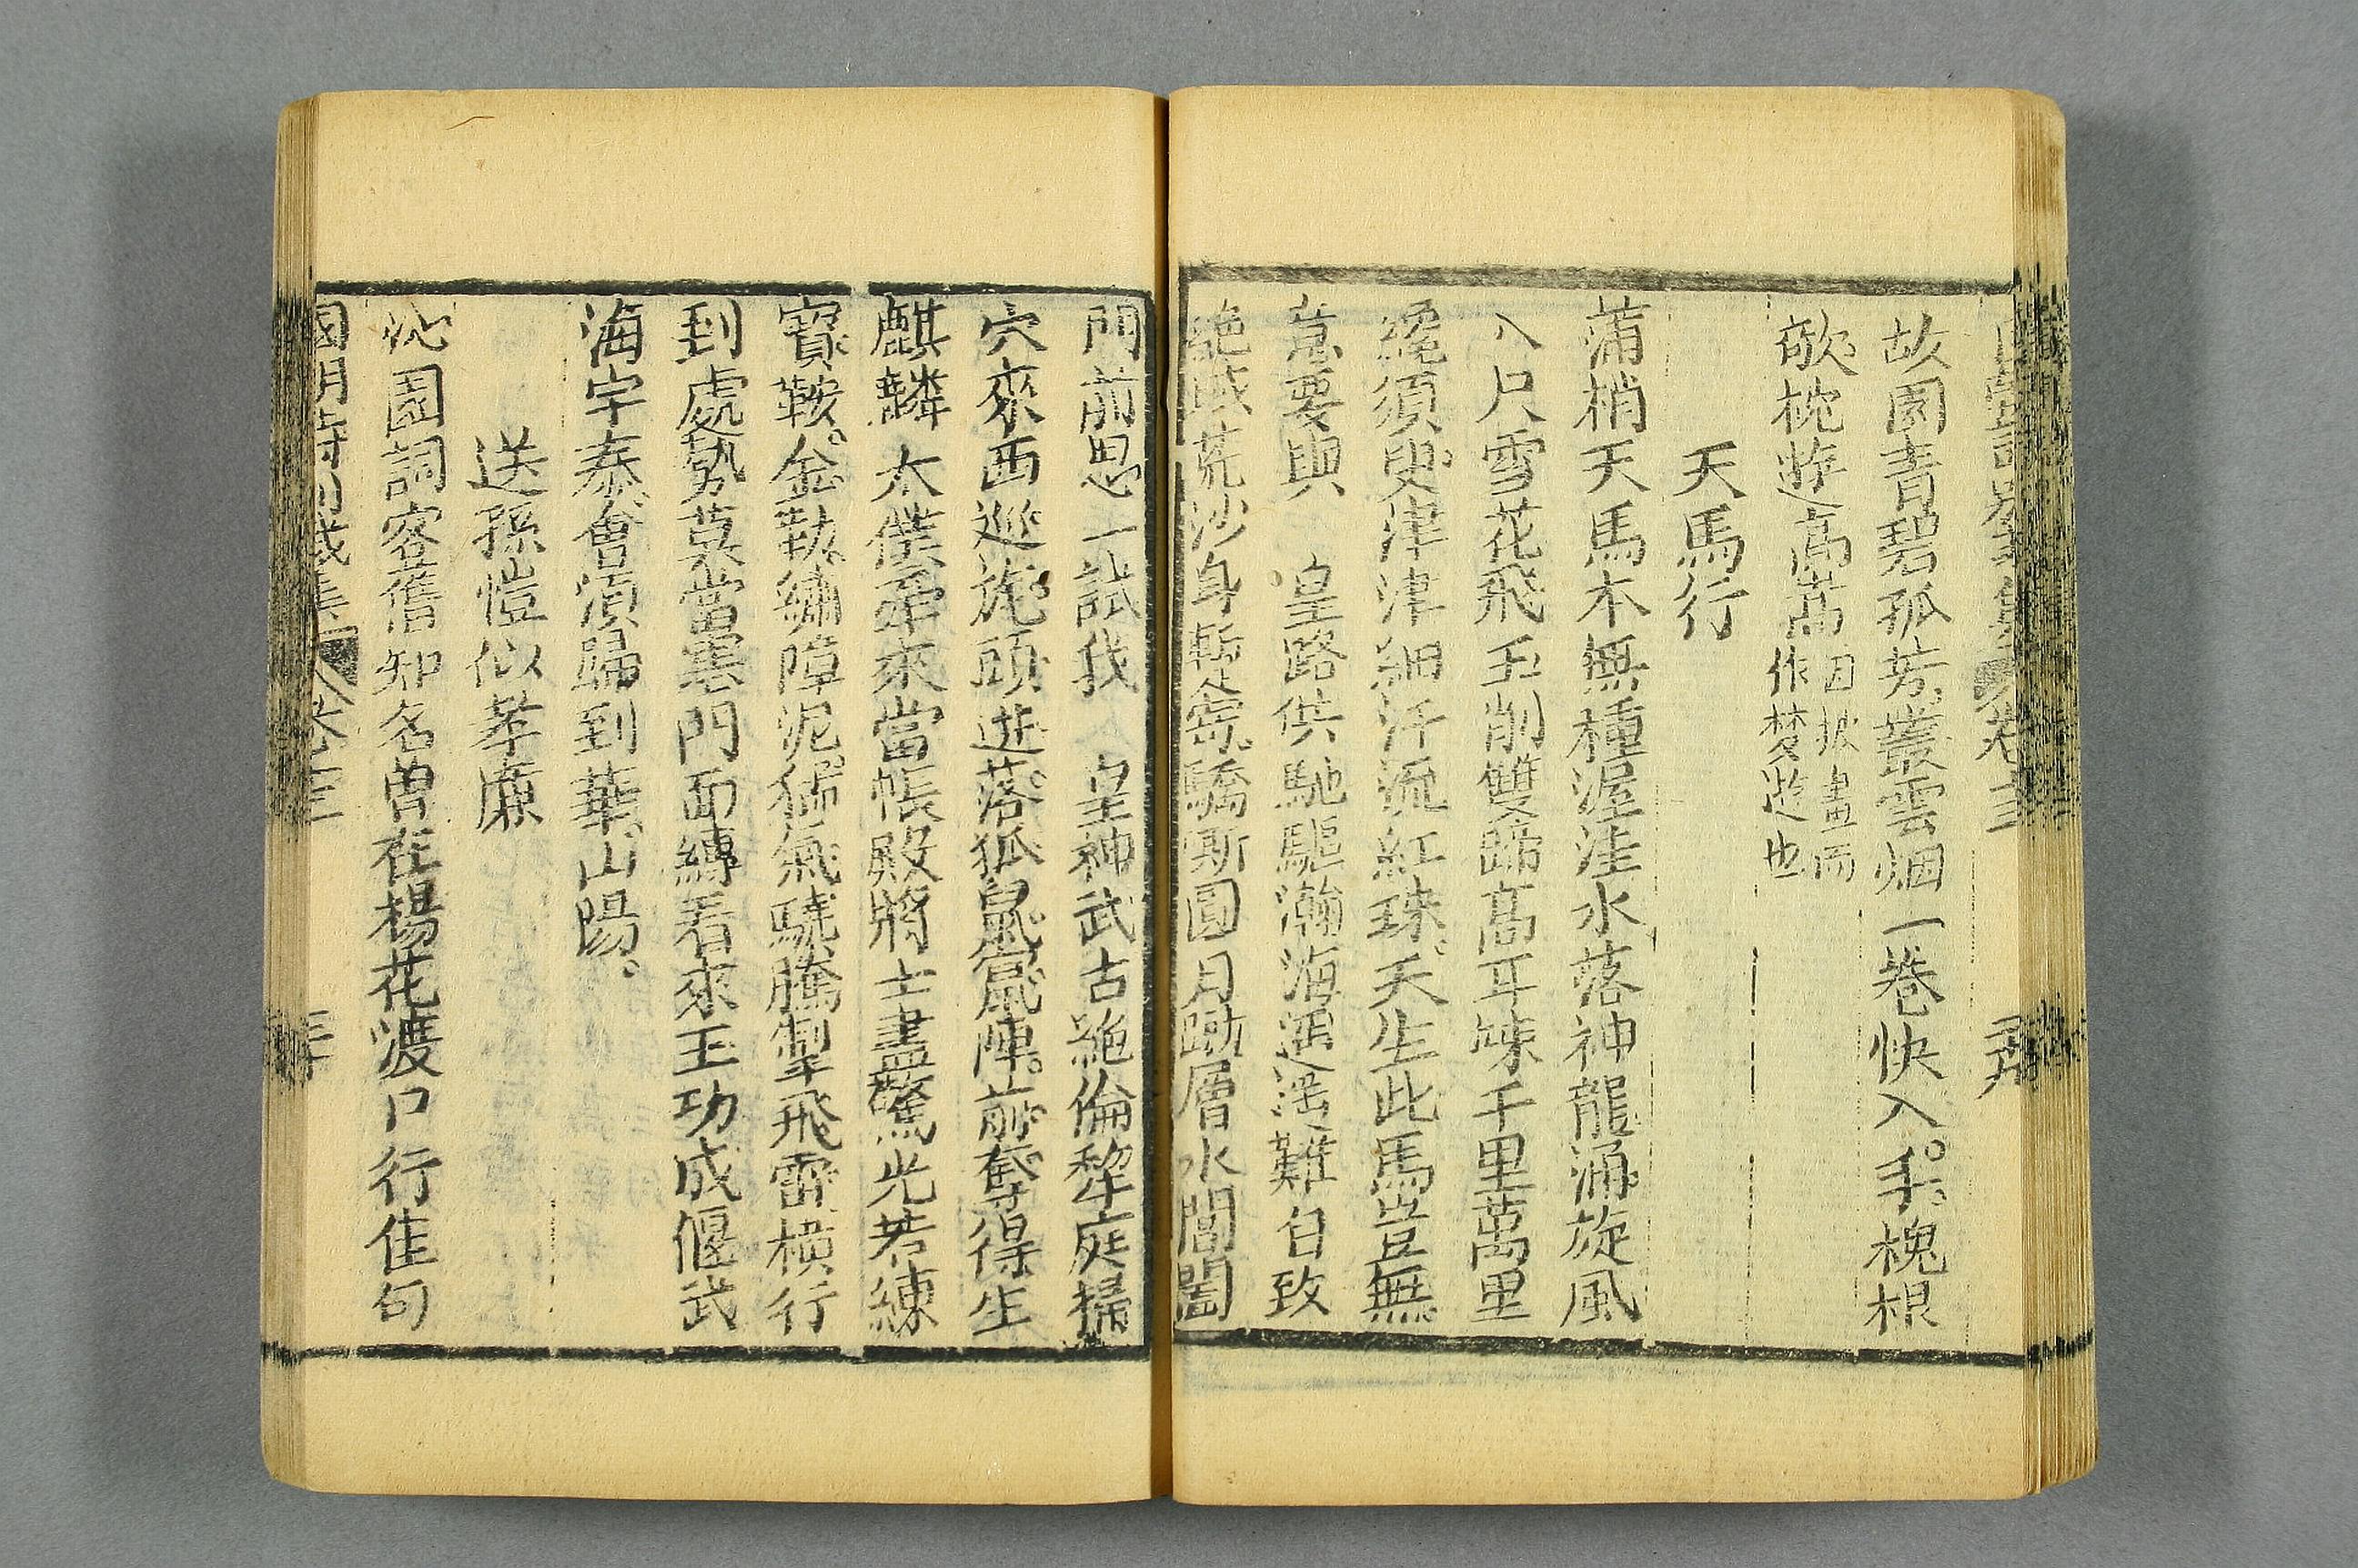 卷三
故園青碧孤芳叢雲烟一卷快入手。槐根
欹枕遊高萬因披畫而作椘遊也
天馬行
蒲梢天馬本無種渥洼水落神龍涌旋風
八尺雪花飛玉削雙蹄高耳竦千里萬里
纔須臾津津細汗流紅珠。天生此馬豈無
意要與 皇路供馳驅瀚海遥遥難自致
絶域荒沙身暫寄。驕嘶圓月蹴層水閶闔
門前思一試我 皇神武古絶倫犂庭掃
穴來西巡旄頭迸落狐鼠竄陣前奪得生
麒麟太僕牽來當帳殿將士盡驚光若練
寳鞍。金勒繡障泥猛氣驍騰掣飛雷橫行
到處勢莫當雲門面縳看來王功成偃武
海宇泰會湏歸到華山陽。
送孫愷似孝廉
沁園詞客舊知名曽在楊花渡口行佳句
國朝詩的